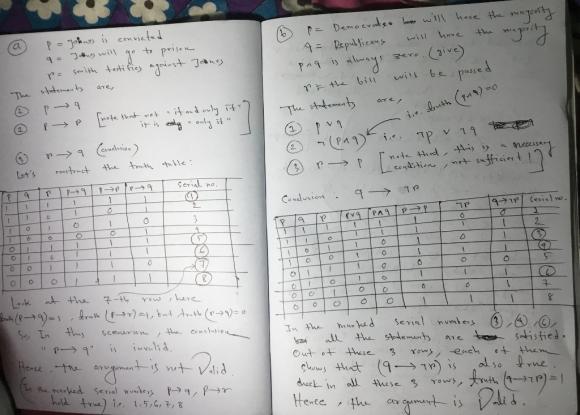 (a) p = Jones is convicted
q = Jones will go to prison
r = Smith testifies against Jones
The statements are,
① p → q
② r → p [note that not "if and only if" it is "only if"]
③ r → q (conclusion)
Let's construct the truth table:
p q r p→q r→p r→q Serial no.
1 1 1 1 1 1 ①
1 1 0 1 1 2
1 0 1 0 3
1 0 0 0 4
0 1 1 ⑤
0 1 ⑥
0 0 1 1 0 ⑦
0 0 0 1 1 1 ⑧
Look at the 7-th row, here
truth (p→q)=1, truth (r→p)=1, but truth (r→q)=0
So In this scenerion, the conclusion
"r → q" is invalid.
Hence the argument is not Valid.
(In the marked serial numbers p→q, p→r
hold true) i.e. 1,5,6,7,8
(b) p = Democrates will have the majority
q = Republicans will have the majority
p∧q is always zero. (give)
r = the bill will be passed
The statements are, i.e. truth (p∧q)=0
① p ∨ q
② ¬(p∧q) i.e. ¬p ∨ ¬q
③ r → p [note that, this is a necessary condition, not sufficient!]
Conclusion. q → ¬r
p q r p∨q p∧q r→p ¬r q→¬r Serial no.
1 1 1 1 1 1 0 0 1
1 1 0 1 1 1 1 1 2
1 0 1 1 0 1 0 1 ③
1 0 0 1 0 1 1 1 ④
0 1 1 1 0 0 0 0 5
0 1 0 1 0 1 1 1 ⑥
0 0 1 0 0 0 0 1 7
0 0 0 0 0 1 1 1 8
In the marked serial numbers ③, ④, ⑥,
all the statements are satisfied.
Out of these 3 rows, each of them
shows that (q → ¬r) is also true.
in all these 3 rows, truth (q→¬r)=1
Hence, the argument is Valid.